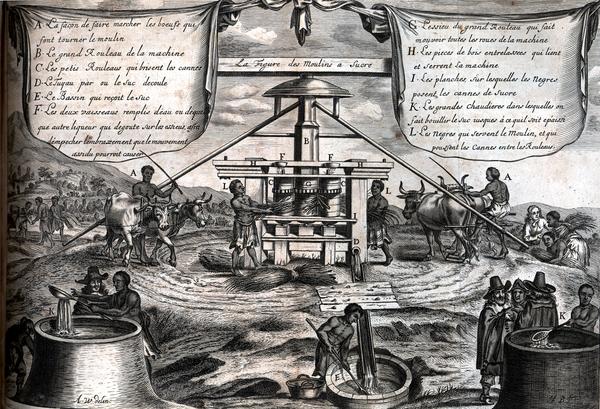 A La façon de faire marcher les boeufs qui
font tourner le moulin
B Le grand Rouleau de la machine
C Les petis Rouleaus qui brisent les cannes
D Le Tuyau par ou le suc decoule
E Le Bassin qui reçoit le Suc
F Les deux vaisseaux remplis d'eau ou de
que autre liqueur qui degoute sur les aisieus, afin
d'empecher l'embrazement que le mouvement
assidu pourroit causer
La Figure des Moulins a Sucre
G L'essieu du grand Rouleau qui fait
mouvoir toutes les roues de la machine
H Les pieces de bois entrelassees qui lient
et serrent la machine
I Les planches sur lesquelles les Negres
posent les cannes de Sucre
K Les grandes chaudieres dans lesquelles on
fait bouillir le suc iusques à ce quil soit epaissi
L Les Negres qui servent le Moulin, et qui
poussent les Cannes entre les Rouleaus
G
B
H
F
F
H
C
C
A
A
L
L
D
I
K
K
E
A.W delin.